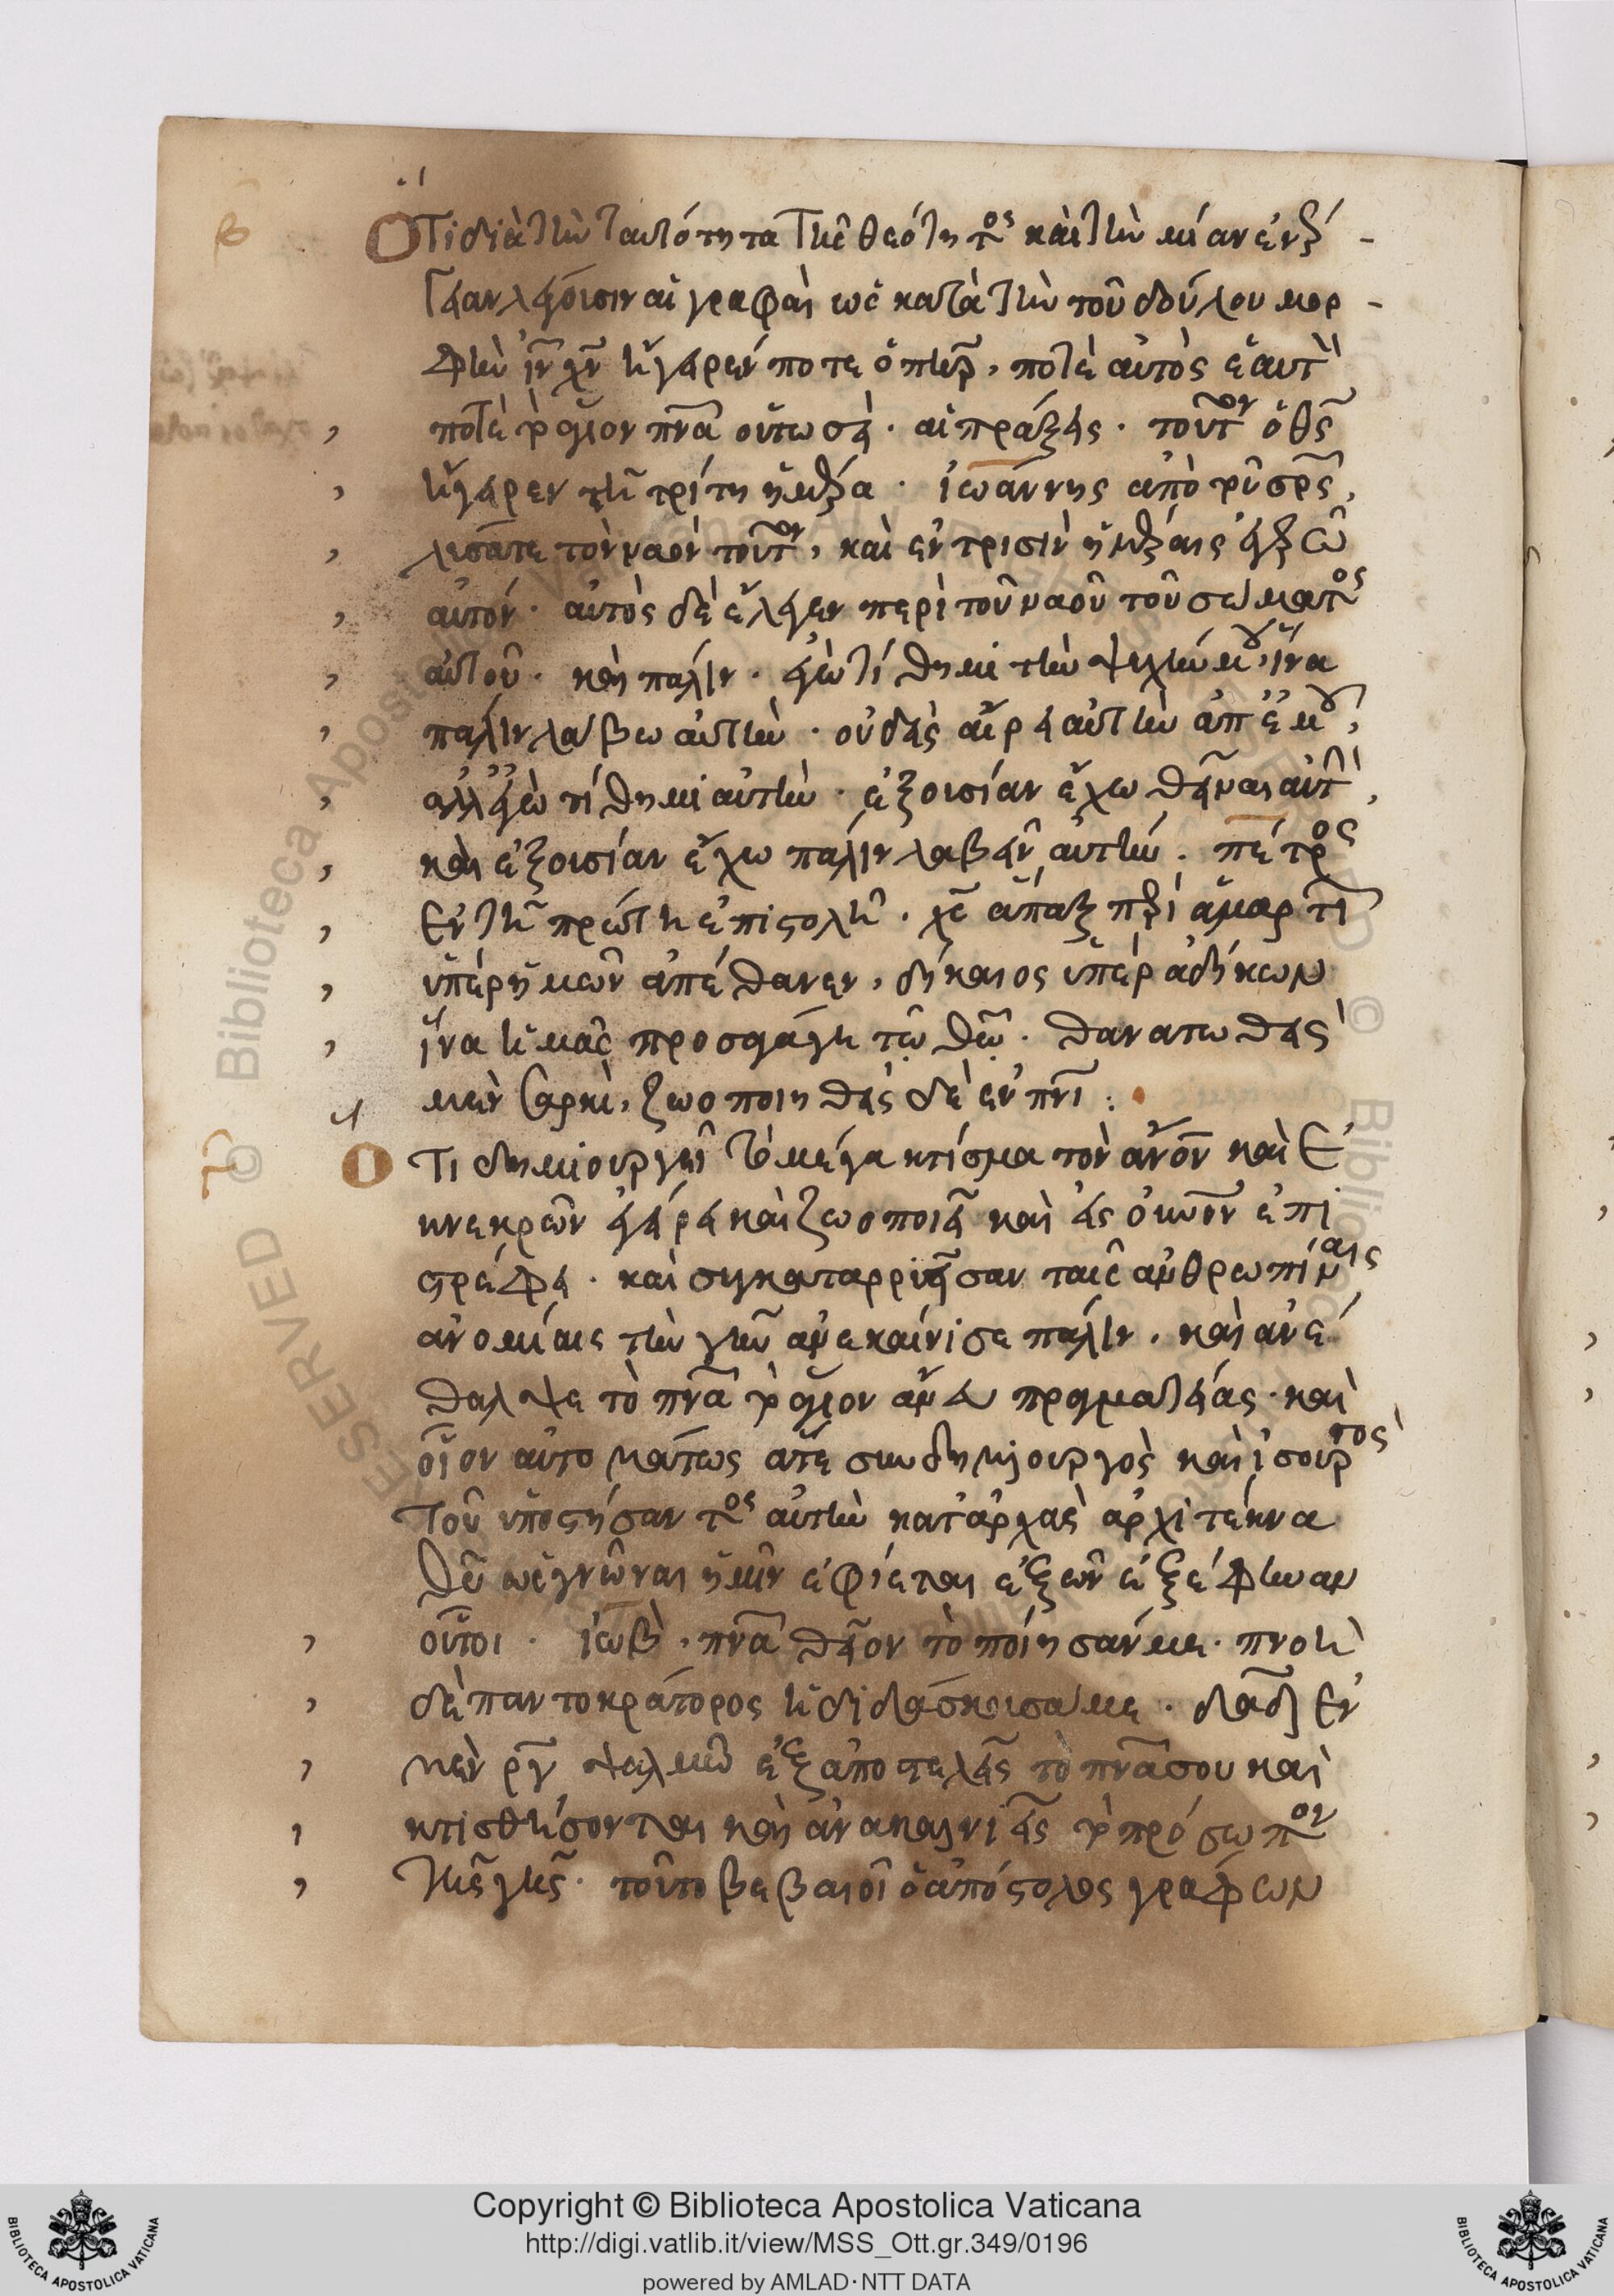 β
Ὅτι διὰ τὴν ταυτότητα τῆς θεότητος καὶ τὴν μίαν ἐνέρ
γειαν λέγουσιν αἱ γραφαὶ ὡς κατὰ τὴν τοῦ δούλου μορ
φὴν ιν χν ἤγειρέν ποτε ὁ πηρ, ποτὲ αὐτὸς ἑαυτὸν
ποτὲ τὸ ἅγιον πνα οὕτωσεί· αἱ πράξεις· τοῦτον ὁ θς
ἤγειρεν τῇ τρίτῃ ἡμέρα· ἰωάννης ἀπὸ
λύσατε τὸν ναὸν τοῦτον, καὶ ἐν τρισὶν ἡμέραις ἐγερῶ
αὐτόν· αὐτὸς δὲ ἔλεγεν περὶ τοῦ ναοῦ τοῦ σώματος
αὐτοῦ· καὶ πάλιν· ἐγὼ τίθημι τὴν ψυχήν μου, ἵνα
πάλιν λάβω αὐτὴν· οὐδεὶς αἴρει αὐτὴν ἀπ' ἐμοῦ,
ἀλλ' ἐγὼ τίθημι αὐτὴν· ἐξουσίαν ἔχω θεῖναι αὐτὴν,
καὶ ἐξουσίαν ἔχω πάλιν λαβεῖν αὐτήν· πέτρος
ἐν τῇ πρώτη ἐπιστολῇ· χς ἅπαξ περὶ ἁμαρτι
ὑπὲρ ἡμῶν ἀπέθανεν, δήκαιος ὑπὲρ ἀδήκων
ἵνα ἡμᾶς προσαγάγη τῷ θῶ· θανατωθεὶς
μὲν σαρκὶ, ζωοποιηθεὶς δὲ ἐν πνι :
γ
Ὅτι δημιουργεῖ τὸ μέγα κτίσμα τὸν ανον καὶ ἐ
κνεκρῶν ἐγείρει καὶ ζωοποιεῖ καὶ εἰς ἐπι
στρέφει· καὶ συγκαταρριγήσασαν ταῖς ἀνθρωπίναις
ἀνομίαις τὴν γῆν ἀνεκαίνισε πάλιν· καὶ ἀνέ
θαλψε τὸ πνα τὸ ἅγιον ἄνευ πραγματείας· καὶ
οἷον αὐτομάτως ἅτε συνδημιουργὸς καὶ ἰσουρ
τοῦ ὑποστήσαντος αὐτὴν κατ' ἀρχὰς ἀρχιτέκνα
θυ ὡς γνῶναι ἡμῖν ἐφίεται ἐξ ὧν ἐξέφηναν
οὗτοι· ἰὼβ, πνα θεῖον τὸ ποίησάν με· πνοὴ
δὲ παντοκράτορος ἡ διδάσκουσά με· δαδ ἐν
μὲν ργ ψαλμῶ ἐξαποστελεῖς τὸ πνα σου καὶ
κτισθήσονται καὶ ἀνακαινιεῖς τὸ πρόσωπον
τῆς γῆς· τοῦτο βεβαιοῖ ὁ ἀπόστολος γράφων
© Biblioteca Apostolica Vaticana
Copyright © Biblioteca Apostolica Vaticana
http://digi.vatlib.it/view/MSS_Ott.gr.349/0196
powered by AMLAD·NTT DATA
BIBLIOTECA APOSTOLICA VATICANA
BIBLIOTECA APOSTOLICA VATICANA